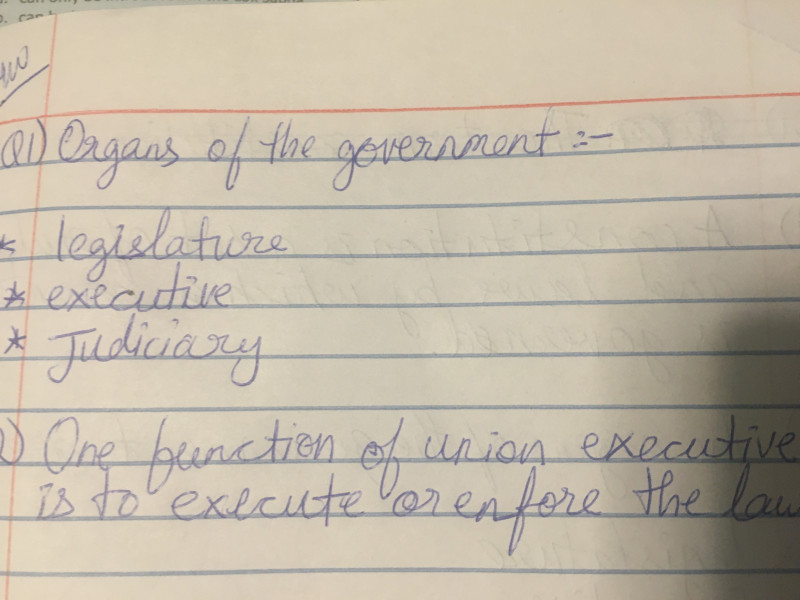 Q1) Organs of the government :-
* legislature
* executive
* Judiciary
One function of union executive
is to execute or enfore the law